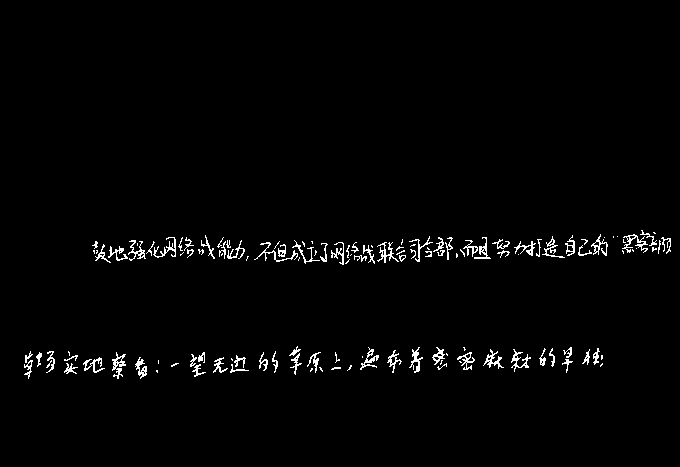 地强化网络战能力,不但成立了网络战联合司令部,而且努力打造自己的“黑客
草场实地察看:一望无边的草原上,遍布着密密麻麻的旱獭